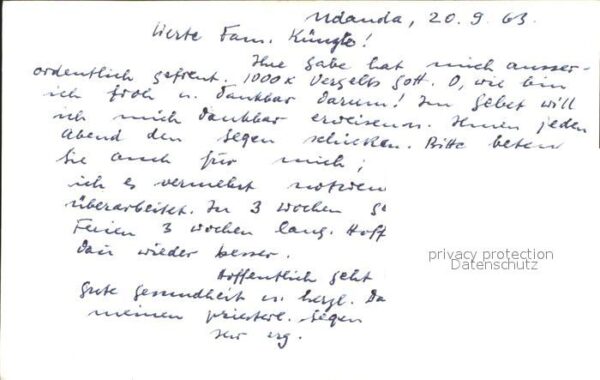 Ndanda, 20.9.63.
Werte Fam. Künzle!
Ihre Gabe hat mich ausser-
ordentlich gefreut. 1000 x Vergelts Gott. O, wie bin
ich froh u. dankbar darum! Im Gebet will
ich mich dankbar erweisen u. Ihnen jeden
Abend den Segen schicken. Bitte beten
Sie auch für mich;
ich es vermehrt notwen
überarbeitet. In 3 Wochen g
Ferien 3 Wochen lang. Hoff
dan wieder besser.
Hoffentlich geht
gute Gesundheit u. herzl. Da
meinen priesterl. Segen
Ihr erg.
privacy protection
Datenschutz